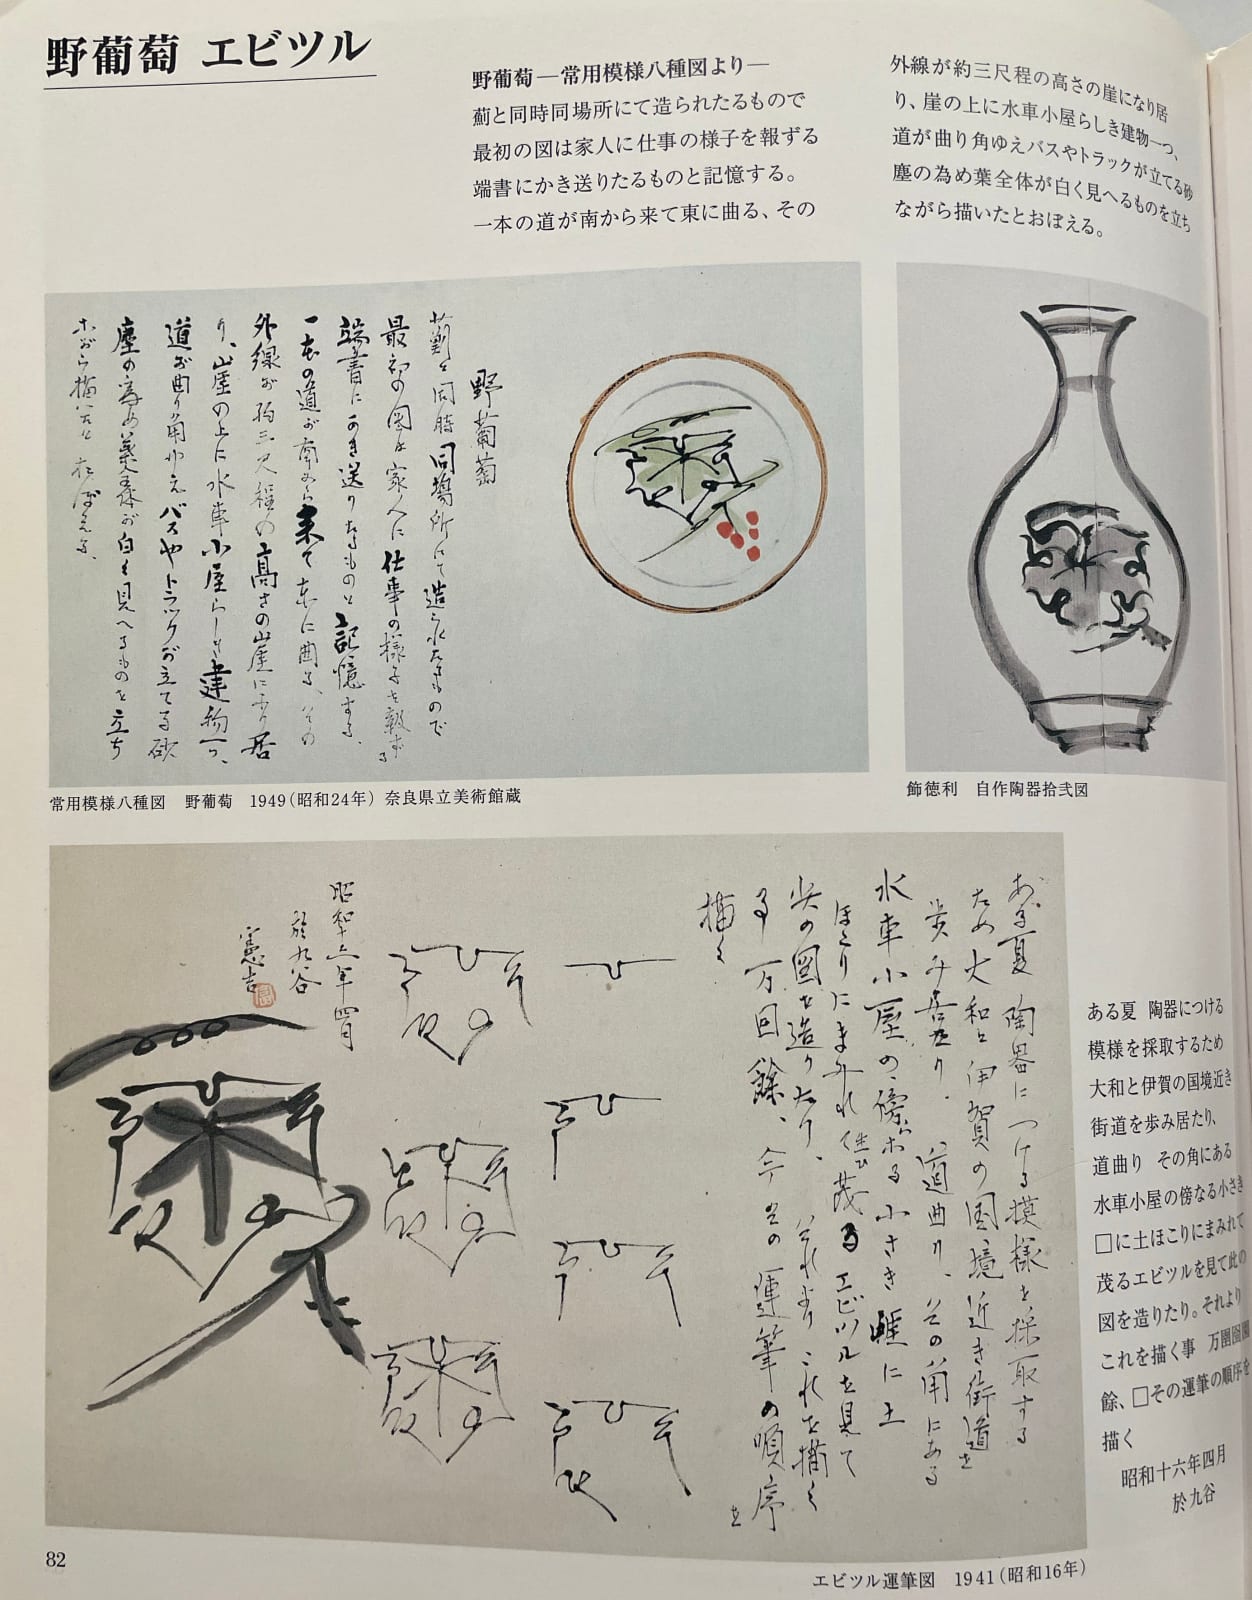 野葡萄 エビツル
野葡萄—常用模様八種図より—
薊と同時同場所にて造られたるもので
最初の図は家人に仕事の様子を報ずる
端書にかき送りたるものと記憶する。
一本の道が南から来て東に曲る、その
外線が約三尺程の高さの崖になり居
り、崖の上に水車小屋らしき建物一つ、
道が曲り角ゆえバスやトラックが立てる砂
塵の為め葉全体が白く見へるものを立ち
ながら描いたとおぼえる。
野葡萄
薊と同時同場所にて造られたるもので
最初の図は家人に仕事の様子を報ずる
端書にかき送りたるものと記憶する、
一本の道が南から来て東に曲る、その
外線が約三尺程の高さの崖になり居
り、崖の上に水車小屋らしき建物一つ、
道が曲り角ゆえバスやトラックが立てる砂
塵の為め葉全体が白く見へるものを立ち
ながら描いたとおぼえる、
常用模様八種図 野葡萄 1949(昭和24年) 奈良県立美術館蔵
飾徳利 自作陶器拾弐図
ある夏 陶器につける模様を採取する
ため大和と伊賀の国境近き街道を
歩み居たり、道曲り、その角にある
水車小屋の傍らなる小さき に土
ほこりにまみれ 茂るエビツルを見て
此の図を造りたり、それよりこれを描く
事 万回餘、今その運筆の順序を
描く
昭和十六年四月
於九谷
憲吉
ある夏 陶器につける
模様を採取するため
大和と伊賀の国境近き
街道を歩み居たり、
道曲り その角にある
水車小屋の傍なる小さき
□に土ほこりにまみれて
茂るエビツルを見て此の
図を造りたり。それより
これを描く事 万
餘、□その運筆の順序を
描く
昭和十六年四月
於九谷
82
エビツル運筆図 1941(昭和16年)